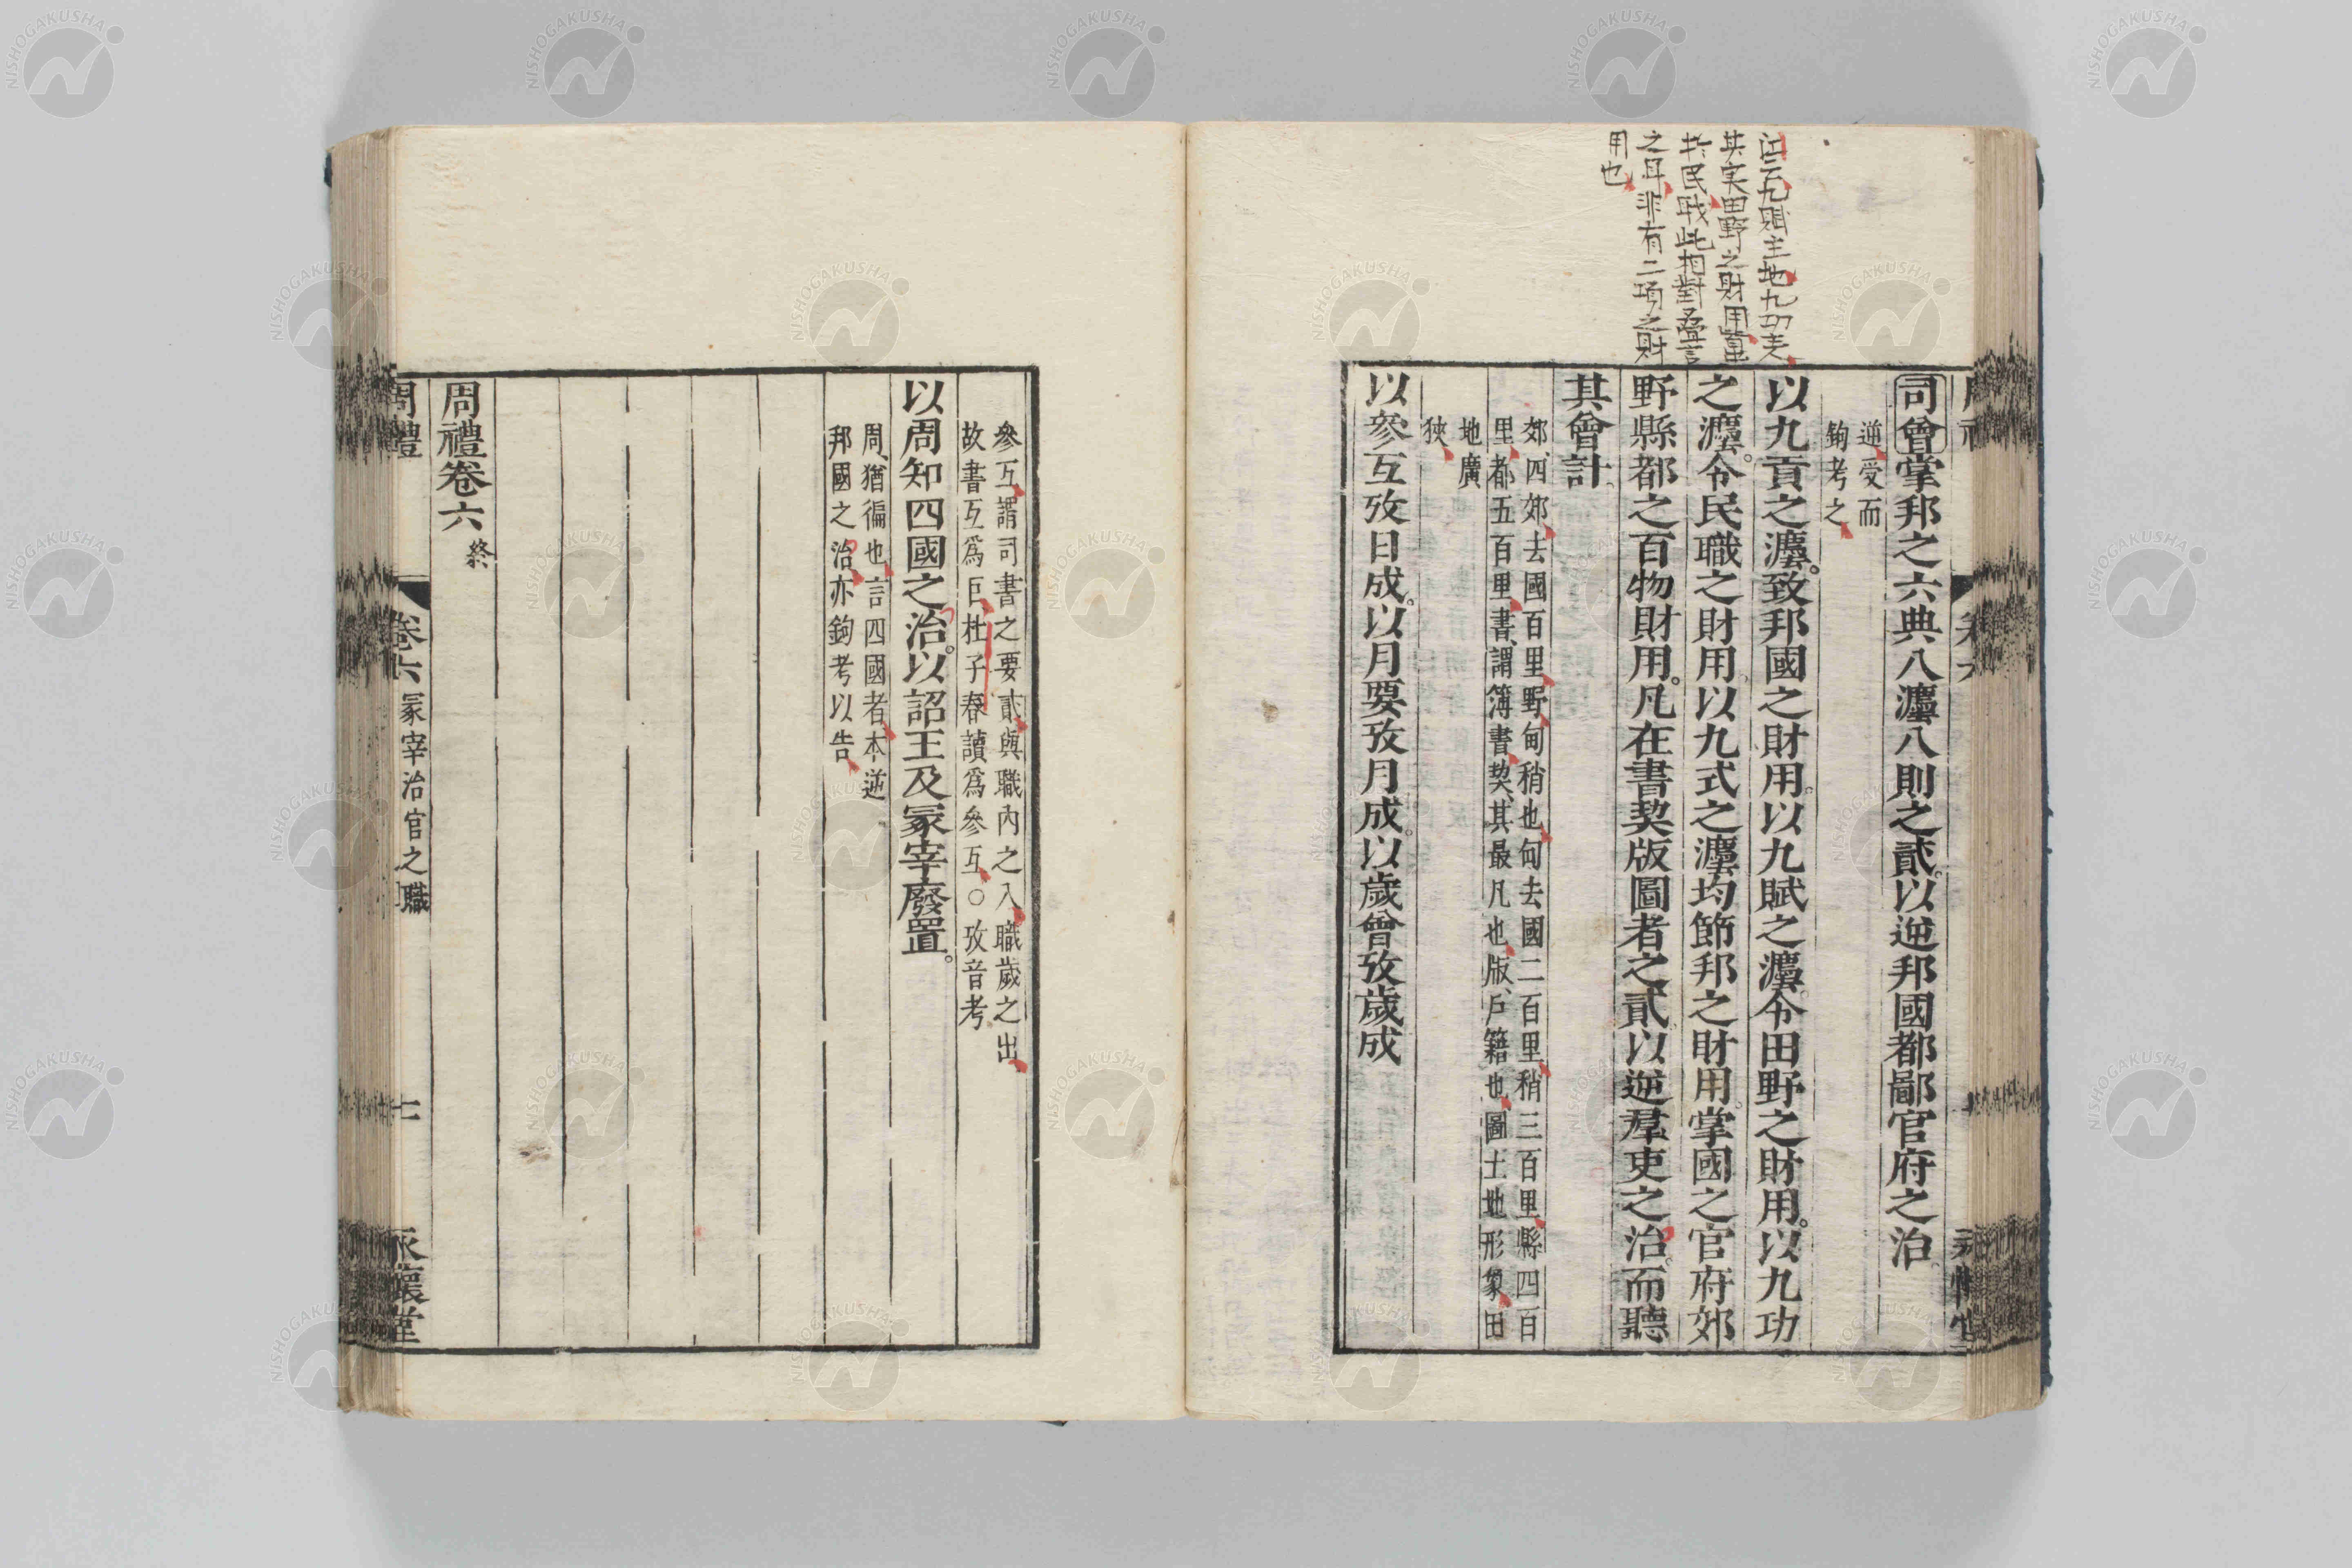 江云九賦主地九功主
其実田野之財用董
之耳非有二項之財
用也
司會掌邦之六典八灋八則之貳以逆邦國都鄙官府之治
逆受而
鉤考之
以九貢之灋致邦國之財用以九賦之灋令田野之財用以九功
之灋令民職之財用以九式之灋均節邦之財用掌國之官府郊
野縣都之百物財用凡在書契版圖者之貳以逆羣吏之治而聽
其會計
郊四郊去國百里野甸稍也甸去國二百里稍三百里縣四百
里都五百里書謂簿書契其最凡也版戶籍也圖土地形象田
地廣
狹
以參互攷日成以月要攷月成以歲會攷歲成
參互謂司書之要貳與職內之入職歲之出
故書互爲巨杜子春讀爲參互○攷音考
以周知四國之治以詔王及冢宰廢置
周猶徧也言四國者本逆
邦國之治亦鉤考以告
周禮卷六終
周禮 卷六 冢宰治官之職 七 永懷堂
NISHOGAKUSHA